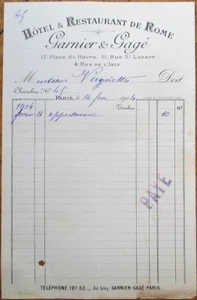 65
HÔTEL & RESTAURANT DE ROME
Garnier & Gagé
17, Place du Havre, 111, Rue St Lazare
4, Rue de l'Isly
Monsieur Doit
Chambre No 65
PARIS, le 16 1904
1904
16 appartement 10
PAYÉ
TÉLÉPHONE 127-53 GARNIER-GAGÉ-PARIS.